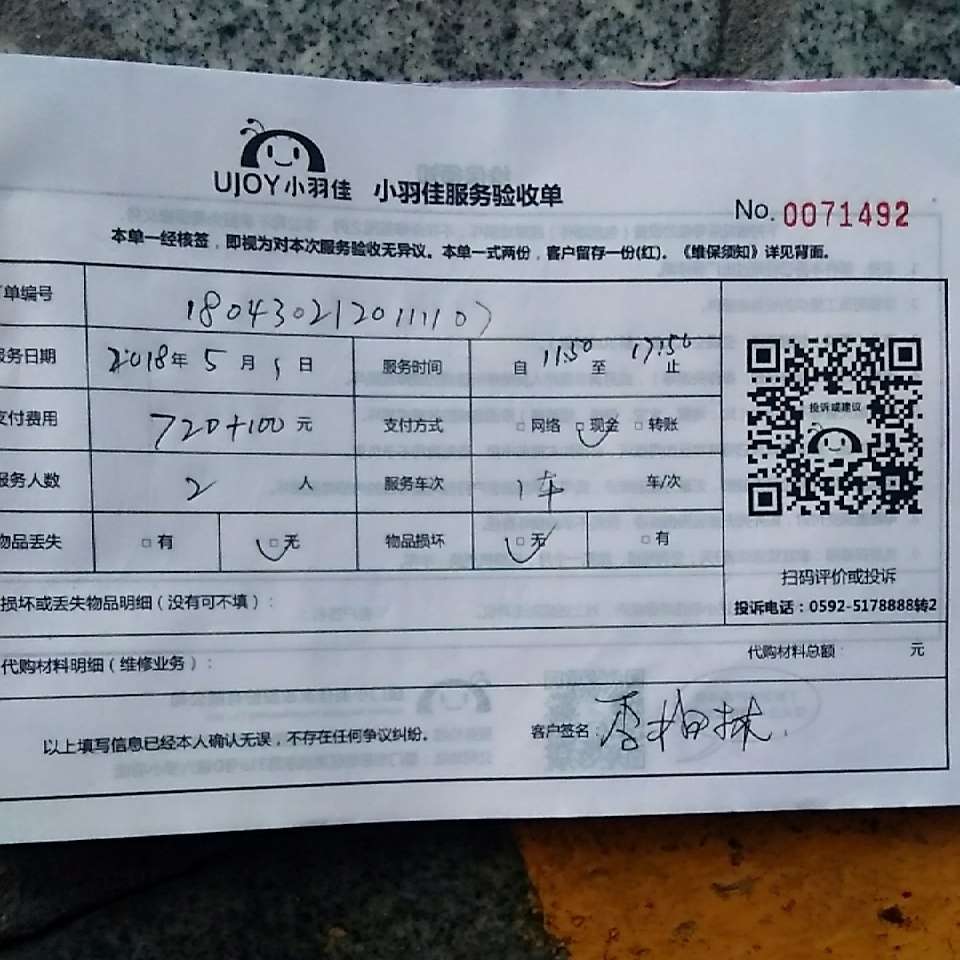 UJOY小羽佳 小羽佳服务验收单
No. 0071492
本单一经核签，即视为对本次服务验收无异议。本单一式两份，客户留存一份(红)。《维保须知》详见背面。
单编号 180430212011107
服务日期 2018年 5 月 1 日 服务时间 自 11:50 至 17:50 止
支付费用 720+100 元 支付方式 □网络 □现金 □转账
服务人数 2 人 服务车次 1车 车/次
物品丢失 □有 □无 物品损坏 □无 □有
投诉或建议
扫码评价或投诉
投诉电话：0592-5178888转2
损坏或丢失物品明细（没有可不填）：
代购材料明细（维修业务）： 代购材料总额： 元
以上填写信息已经本人确认无误，不存在任何争议纠纷。 客户签名：